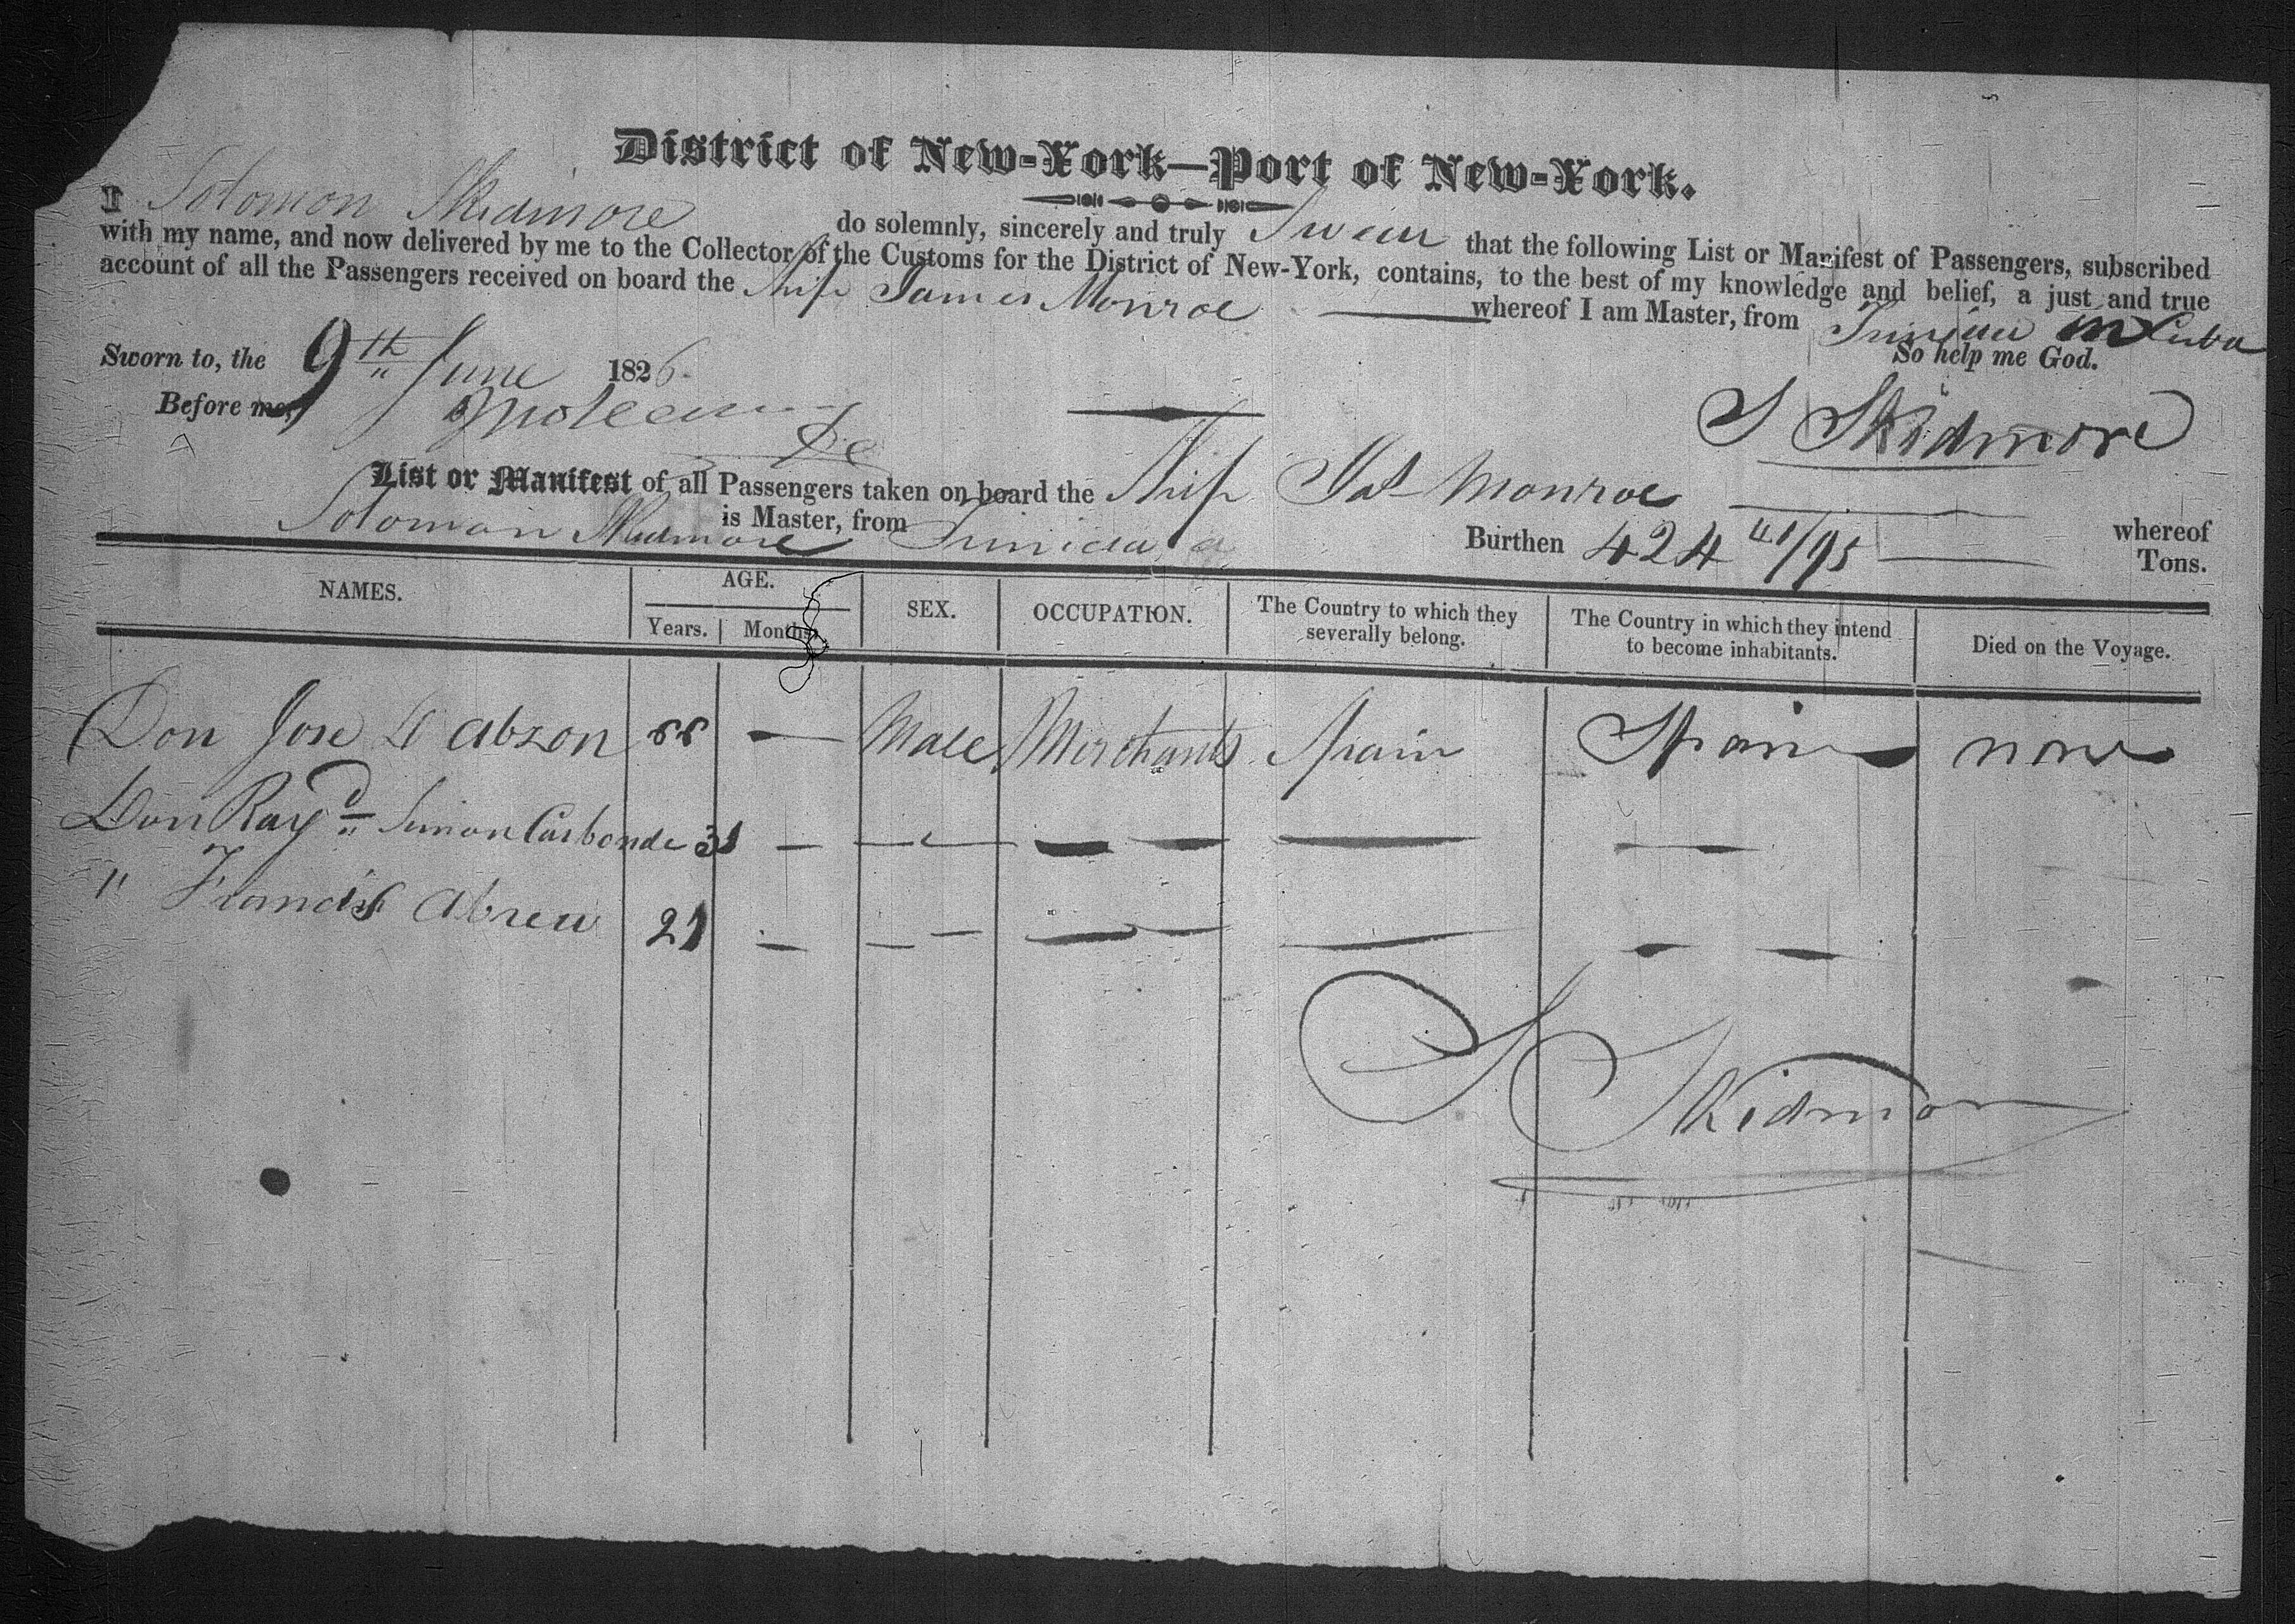 District of New-York—Port of New-York.
I Solomon Skidmore do solemnly, sincerely and truly Swear that the following List or Manifest of Passengers, subscribed
with my name, and now delivered by me to the Collector of the Customs for the District of New-York, contains, to the best of my knowledge and belief, a just and true
account of all the Passengers received on board the Ship James Monroe whereof I am Master, from Trinidad in Cuba
So help me God.
Sworn to, the 9th June 1826
Before me,
S Skidmore
List or Manifest of all Passengers taken on board the Ship Jas Monroe whereof
Solomon Skidmore is Master, from Trinidad Burthen 424 41/95 Tons.
NAMES. AGE. SEX. OCCUPATION. The Country to which they severally belong. The Country in which they intend to become inhabitants. Died on the Voyage.
Years. Months.
Don Jose Male Merchants Spain Spain none
Don Rayd Simon 31
" Francis Abreu 21
S Skidmore